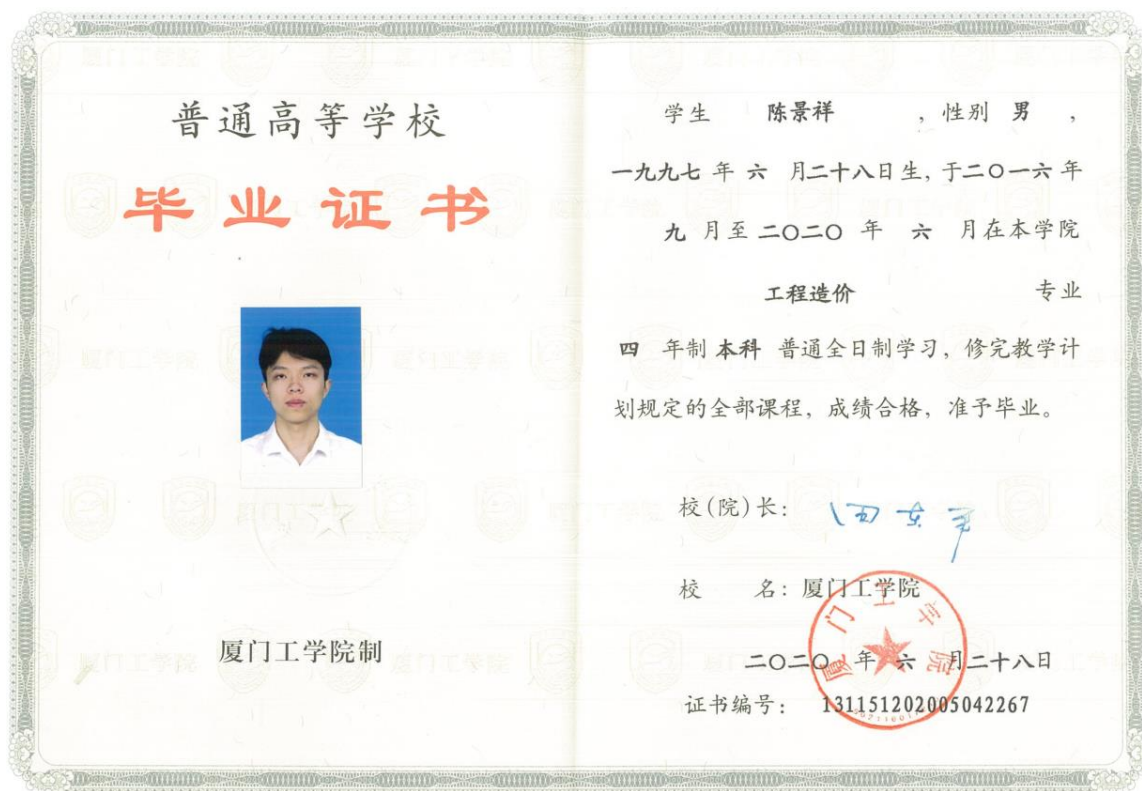 普通高等学校
毕业证书
厦门工学院制
学生 陈景祥 ,性别 男 ,
一九九七 年 六 月二十八日生, 于二〇一六 年
九 月至 二〇二〇 年 六 月在本学院
工程造价 专业
四 年制 本科 普通全日制学习, 修完教学计
划规定的全部课程, 成绩合格, 准予毕业。
校(院)长:
校 名: 厦门工学院
厦门工学院
二〇二〇 年 六 月二十八日
证书编号: 131151202005042267